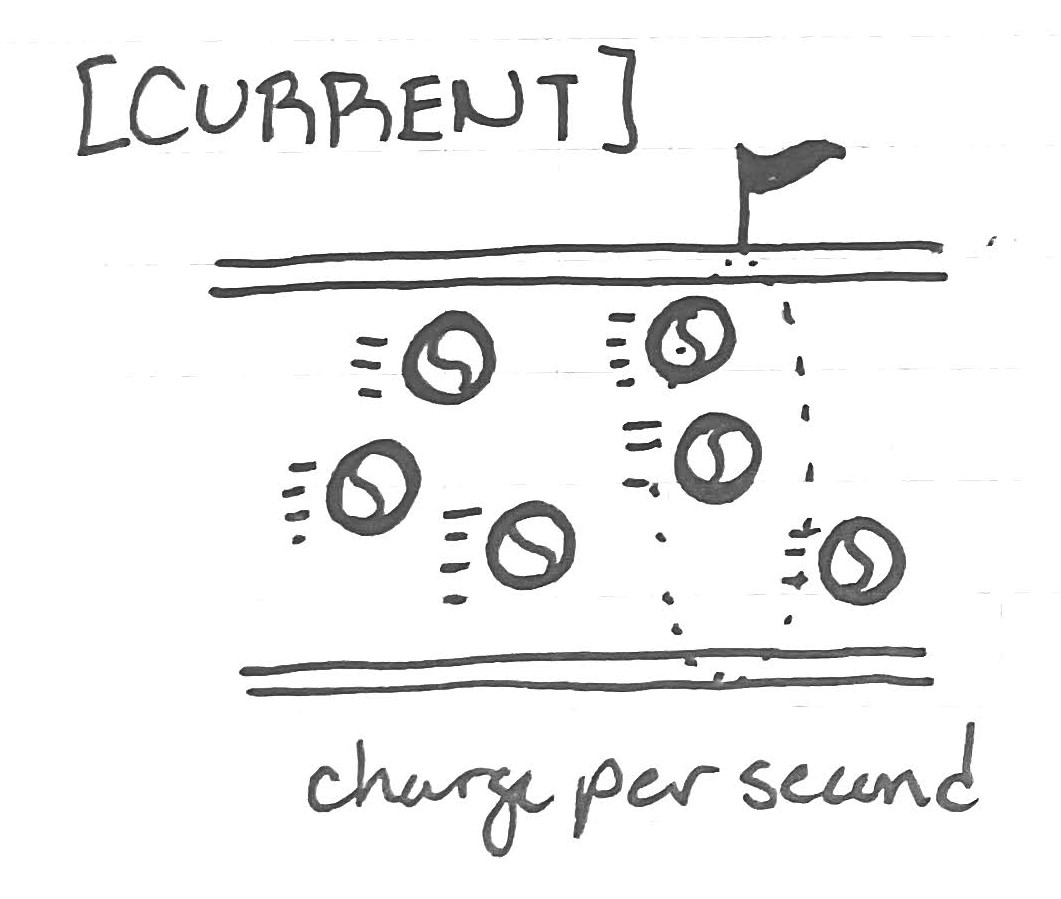 [CURRENT]
charge per second